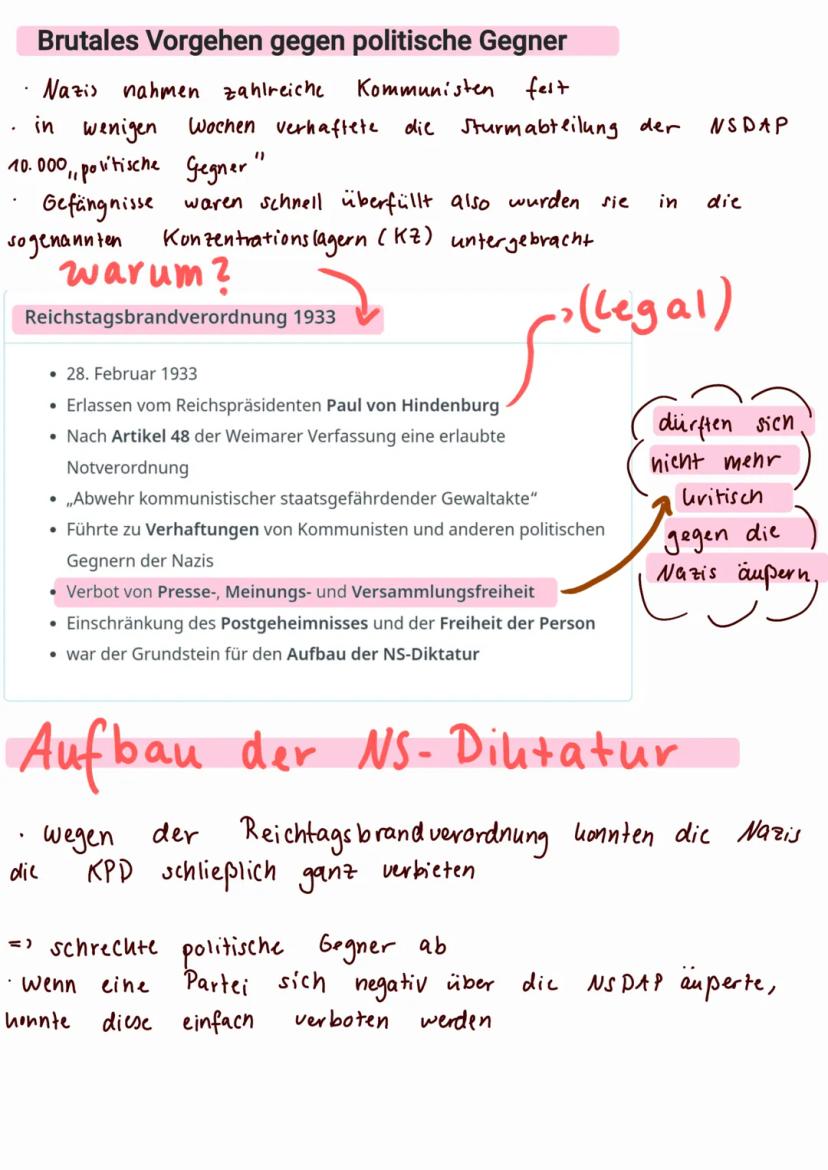 Brutales Vorgehen gegen politische Gegner
· Nazis nahmen zahlreiche Kommunisten fest
· in wenigen Wochen verhaftete die Sturmabteilung der NSDAP
10.000 „politische Gegner"
· Gefängnisse waren schnell überfüllt also wurden sie in die
sogenannten Konzentrationslagern (KZ) untergebracht
warum?
→ (Legal)
Reichstagsbrandverordnung 1933
• 28. Februar 1933
• Erlassen vom Reichspräsidenten Paul von Hindenburg
• Nach Artikel 48 der Weimarer Verfassung eine erlaubte
Notverordnung
• „Abwehr kommunistischer staatsgefährdender Gewaltakte“
• Führte zu Verhaftungen von Kommunisten und anderen politischen
Gegnern der Nazis
• Verbot von Presse-, Meinungs- und Versammlungsfreiheit
• Einschränkung des Postgeheimnisses und der Freiheit der Person
• war der Grundstein für den Aufbau der NS-Diktatur
dürften sich
nicht mehr
kritisch
gegen die
Nazis äußern
Aufbau der NS-Diktatur
· wegen der Reichtagsbrandverordnung konnten die Nazis
die KPD schließlich ganz verbieten
=> schreckte politische Gegner ab
· wenn eine Partei sich negativ über die NSDAP äußerte,
konnte diese einfach verboten werden